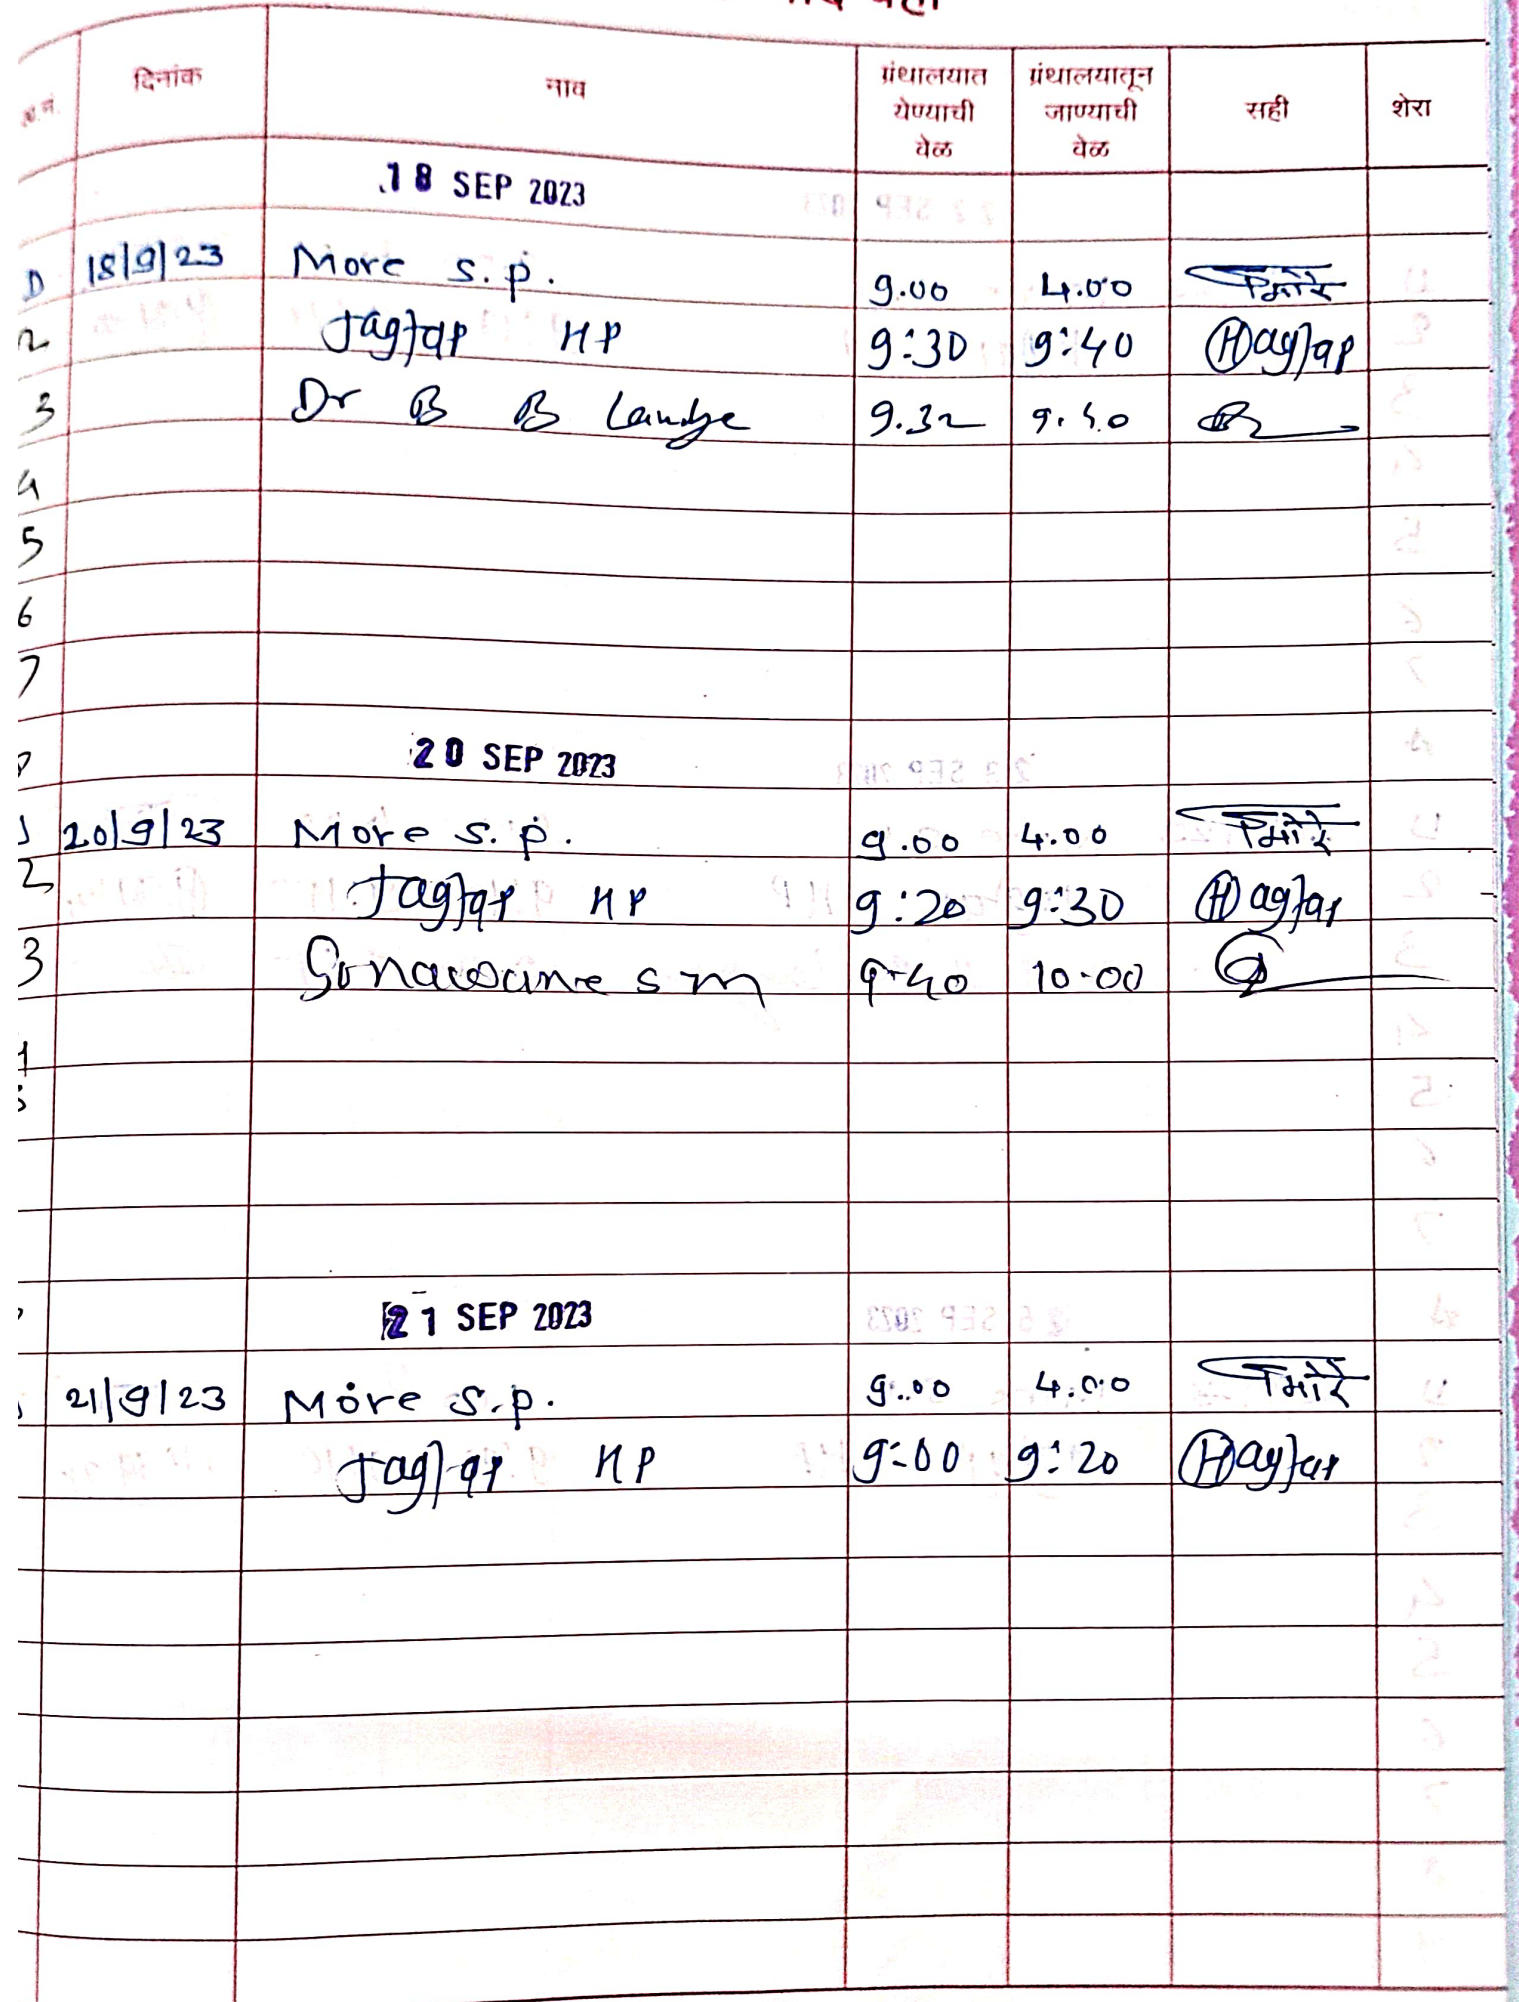 अ.नं. दिनांक नाव ग्रंथालयात येण्याची वेळ ग्रंथालयातून जाण्याची वेळ सही शेरा
18 SEP 2023
18/9/23 More S.P. 9.00 4.00 मोरे
2 Jagtap HP 9:30 9:40 HJagtap
3 Dr B B Landge 9.32
4
5
6
7
20 SEP 2023
1 20/9/23 More S.P. 9.00 4.00 मोरे
2 Jagtap HP 9:20 9:30 HJagtap
3 Sonawane S M 9.40 10.00
4
5
21 SEP 2023
21/9/23 More S.P. 9.00 4.00 मोरे
Jagtap HP 9:00 9:20 HJagtap